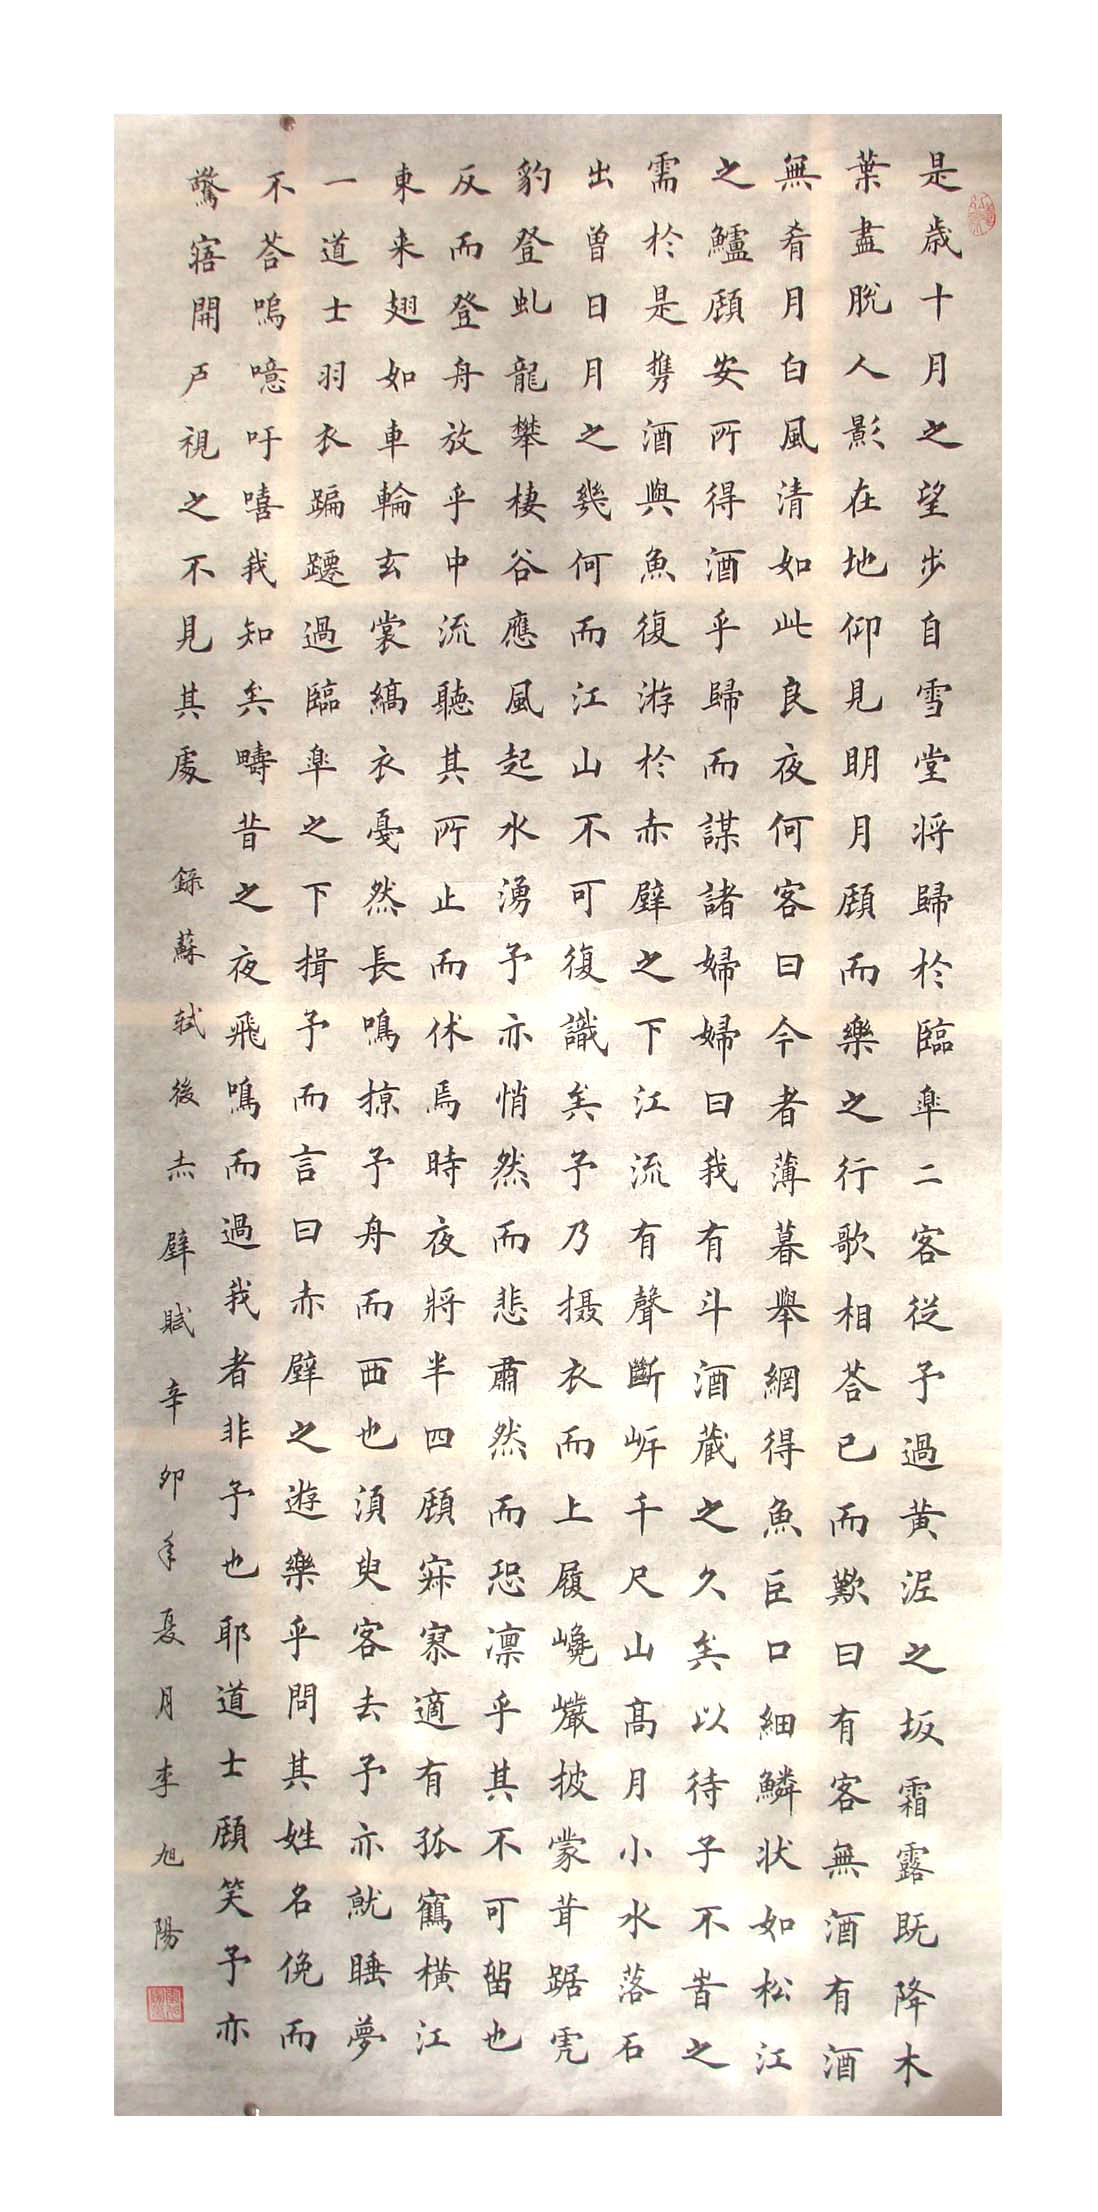 是歲十月之望步自雪堂將歸於臨皋二客從予過黃泥之坂霜露既降木
葉盡脫人影在地仰見明月顧而樂之行歌相荅已而歎曰有客無酒有酒
無肴月白風清如此良夜何客曰今者薄暮舉網得魚巨口細鱗狀如松江
之鱸顧安所得酒乎歸而謀諸婦婦曰我有斗酒藏之久矣以待子不峕之
需於是攜酒與魚復游於赤壁之下江流有聲斷岸千尺山高月小水落石
出曾日月之幾何而江山不可復識矣予乃摄衣而上履巉巖披蒙茸踞虎
豹登虬龍攀棲谷應風起水湧予亦悄然而悲肅然而恐凛乎其不可留也
反而登舟放乎中流聽其所止而休焉時夜將半四顧寂寥適有孤鶴橫江
東来翅如車輪玄裳縞衣戛然長鳴掠予舟而西也須臾客去予亦就睡夢
一道士羽衣蹁躚過臨皋之下揖予而言曰赤壁之遊樂乎問其姓名俛而
不荅嗚噫吁嘻我知矣疇昔之夜飛鳴而過我者非予也耶道士顧笑予亦
驚寤開戶視之不見其處 錄蘇軾後赤壁賦辛卯年夏月李旭陽